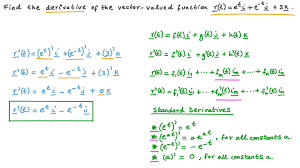 Find the derivative of the vector-valued function r(t) = e^t i + e^-t j + 3k.
r'(t) = (e^t)' i + (e^-t)' j + (3)' k
r'(t) = e^t i - e^-t j + (3)' k
r'(t) = e^t i - e^-t j + 0k
r'(t) = e^t i - e^-t j
r(t) = f(t) i + g(t) j + h(t) k
r'(t) = f'(t) i + g'(t) j + h'(t) k
r(t) = f₁(t) i₁ + ··· + fₙ(t) iₙ
r'(t) = f₁'(t) i₁ + ··· + fₙ'(t) iₙ
Standard Derivatives
* (e^t)' = e^t
* (e^at)' = a e^at, for all constants a.
* (e^-t)' = -e^-t
* (a)' = 0, for all constants a.